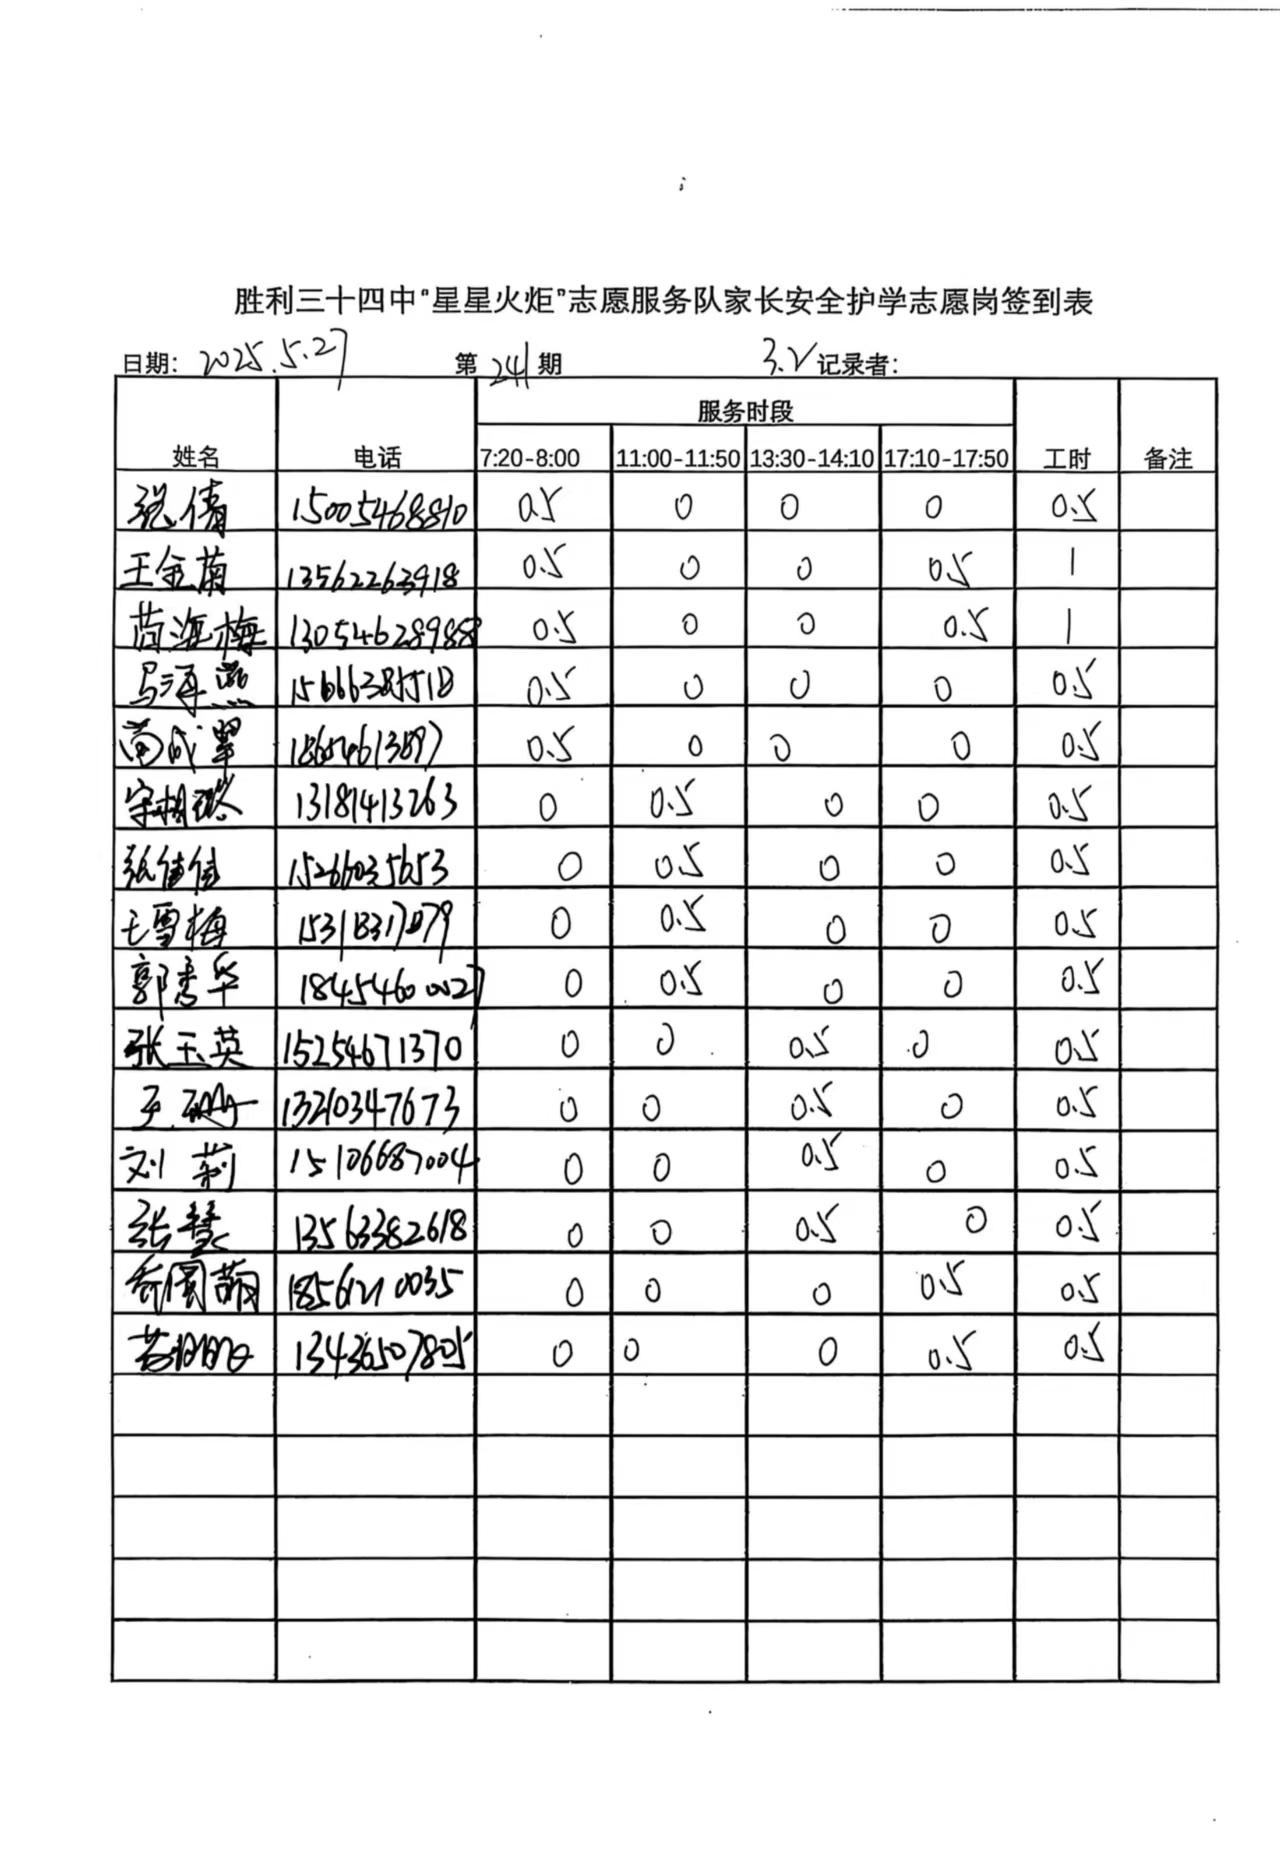 胜利三十四中“星星火炬”志愿服务队家长安全护学志愿岗签到表
日期: 2025.5.27 第 241 期 3.2 记录者:
服务时段
姓名 电话 7:20-8:00 11:00-11:50 13:30-14:10 17:10-17:50 工时 备注
张倩 15005468810 0.5 0 0 0 0.5
王金菊 13562263918 0.5 0 0 0.5 1
苗海梅 13054628988 0.5 0 0 0.5 1
马海燕 0.5 0 0 0 0.5
18654613897 0.5 0 0 0 0.5
13181413263 0 0.5 0 0 0.5
张倩倩 15266035653 0 0.5 0 0 0.5
王雪梅 0 0.5 0 0 0.5
郭秀华 18454600027 0 0.5 0 0 0.5
张玉英 15254671370 0 0 0.5 0 0.5
王珊 13210347673 0 0 0.5 0 0.5
刘莉 15106687004 0 0 0.5 0 0.5
张慧 13563382618 0 0 0.5 0 0.5
18561210035 0 0 0 0.5 0.5
13436507805 0 0 0 0.5 0.5